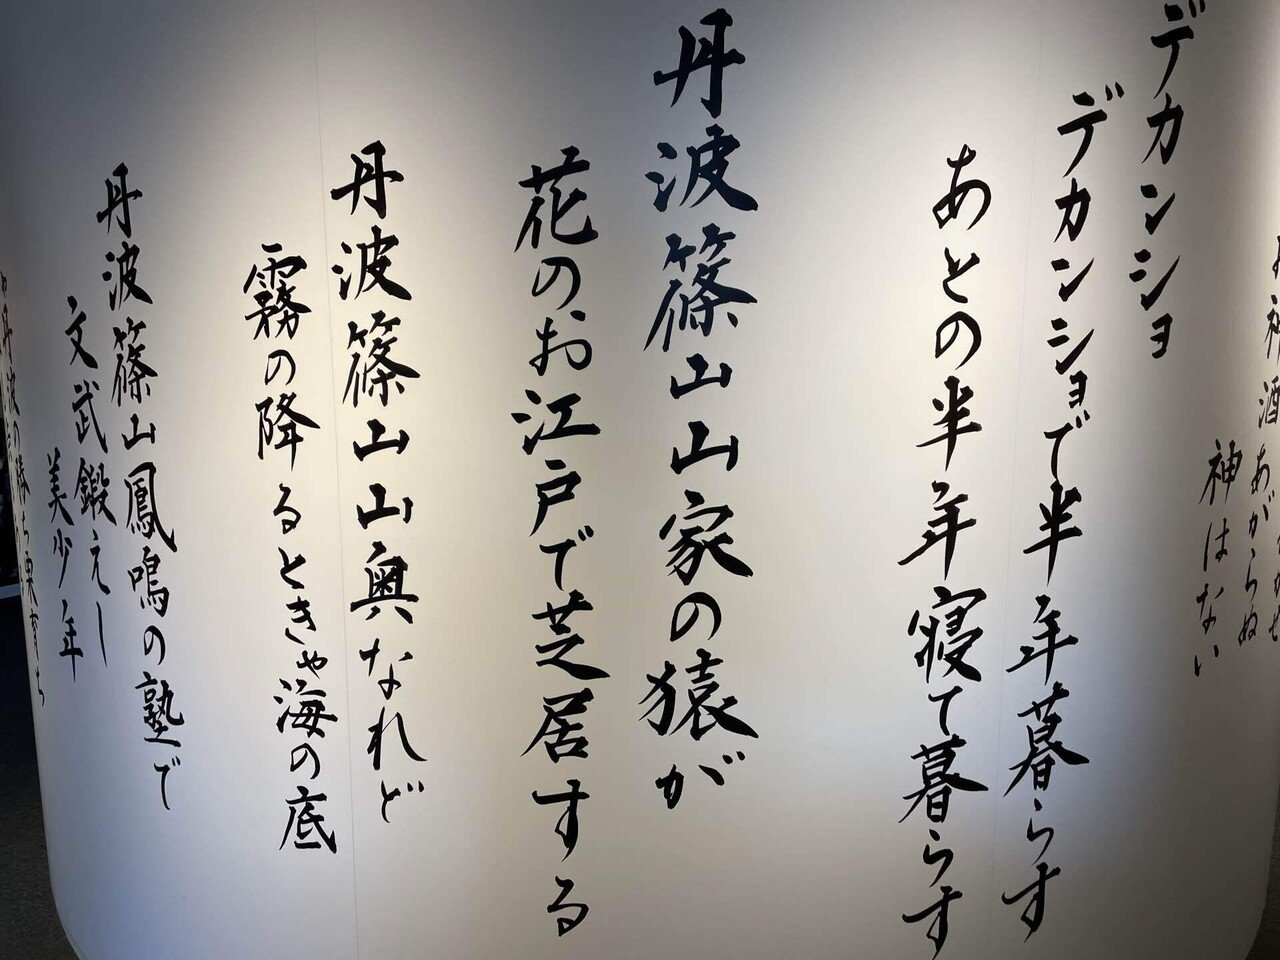 神酒あがらぬ
神はない
デカンショ
デカンショで半年暮らす
あとの半年寝て暮らす
丹波篠山山家の猿が
花のお江戸で芝居する
丹波篠山山奥なれど
霧の降るときゃ海の底
丹波篠山鳳鳴の塾で
文武鍛えし
美少年
丹波の勝ち栗育ち